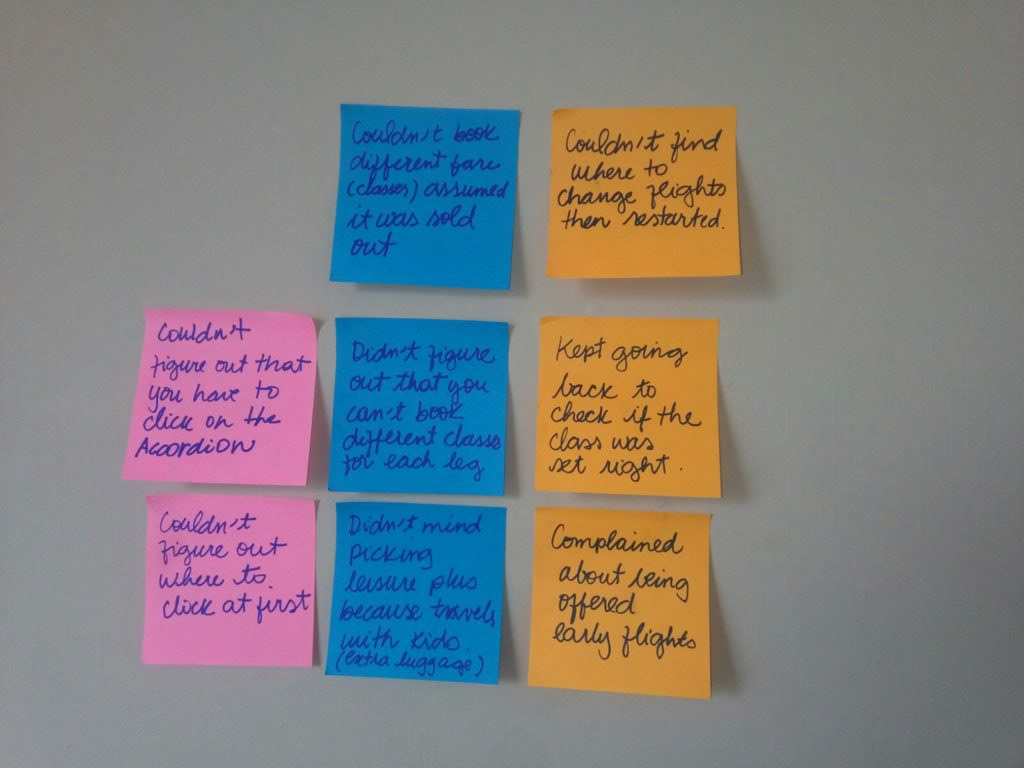 Couldn't book
different fare
(classes) assumed
it was sold
out
Couldn't find
where to
change flights
then restarted.
Couldn't
figure out that
you have to
click on the
Accordion
Didn't figure
out that you
can't book
different classes
for each leg
Kept going
back to
check if the
class was
set right.
Couldn't
figure out
where to.
click at first
Didn't mind
picking
leisure plus
because travels
with kids.
(extra luggage)
Complained
about being
offered
early flights